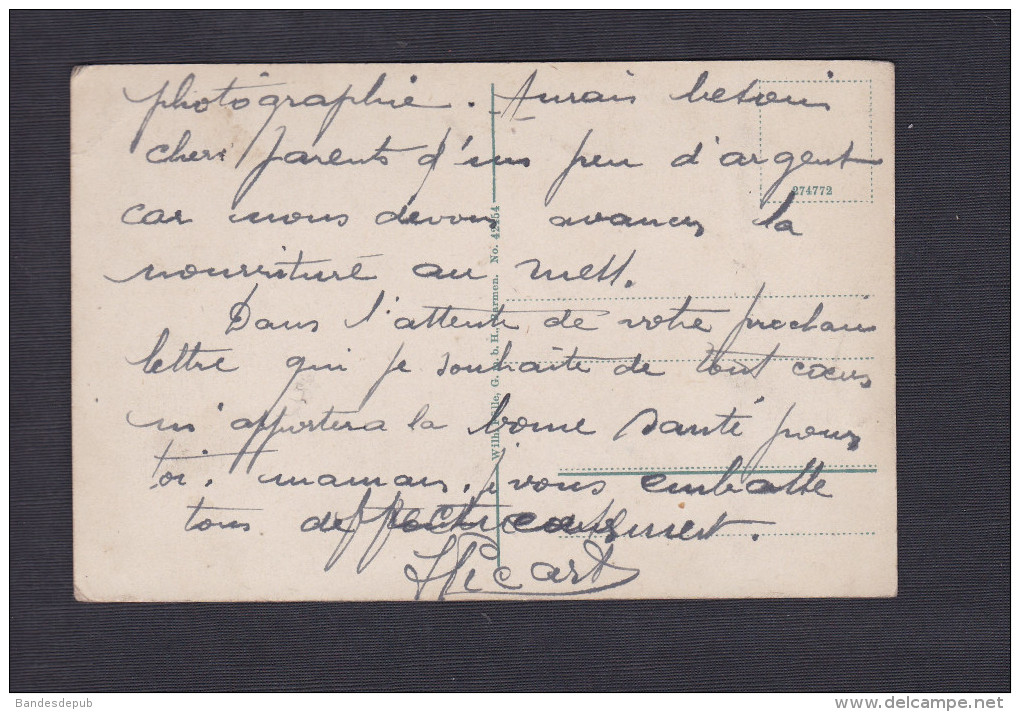 photographie. Aurais besoin
chers parents d'un peu d'argent
car nous devons avancer la
nourriture au mess.
Dans l'attente de votre prochain
lettre qui je souhaite de tout cœur
m'apportera la bonne santé pour
toi, maman, j vous embrasse
tous affectueusement.
274772
No. 42454
G. m. b. H., Barmen.
Bandesdepub
www.delcampe.net